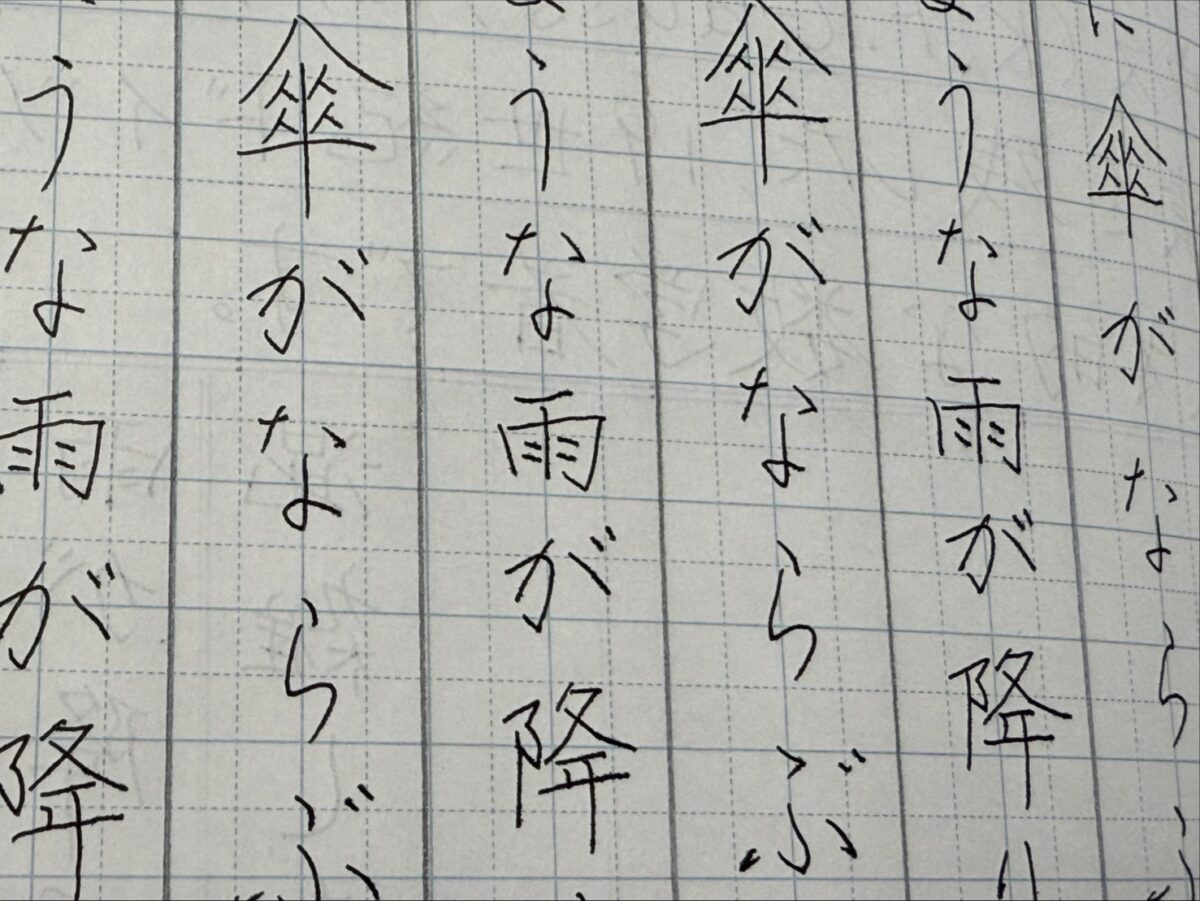 に傘がなら
うな雨が降り
傘がならぶ
うな雨が降
傘がならぶ
うな雨が降